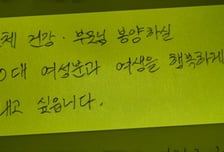 체 건강·부모님 봉양하실
0대 여성분과 여생을 행복하게
내고 싶읍니다.